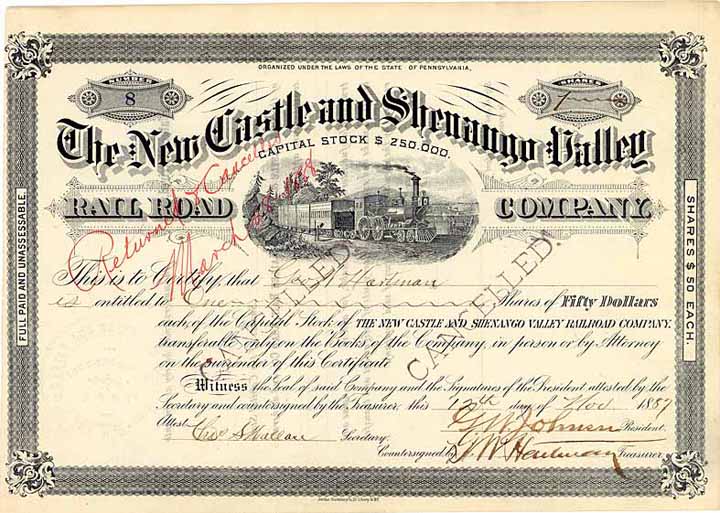 ORGANIZED UNDER THE LAWS OF THE STATE OF PENNSYLVANIA,
NUMBER
8
SHARES
1
The New Castle and Shenango Valley
CAPITAL STOCK $ 250.000.
RAIL ROAD COMPANY.
Returned & Cancelled
March 28 1888
FULL PAID AND UNASSESSABLE.
SHARES $ 50 EACH.
This is to Certify, that Geo W Hartman
is entitled to One Shares of Fifty Dollars
each, of the Capital Stock of THE NEW CASTLE AND SHENANGO VALLEY RAILROAD COMPANY.
transferable only on the Books of the Company, in person or by Attorney
on the surrender of this Certificate
CANCELLED.
CANCELLED.
Witness the Seal of said Company and the Signatures of the President attested by the
Secretary and countersigned by the Treasurer, this 12th day of Nov 1887
Attest
Secretary.
G W Johnson President.
Countersigned by G. W Hartman Treasurer.